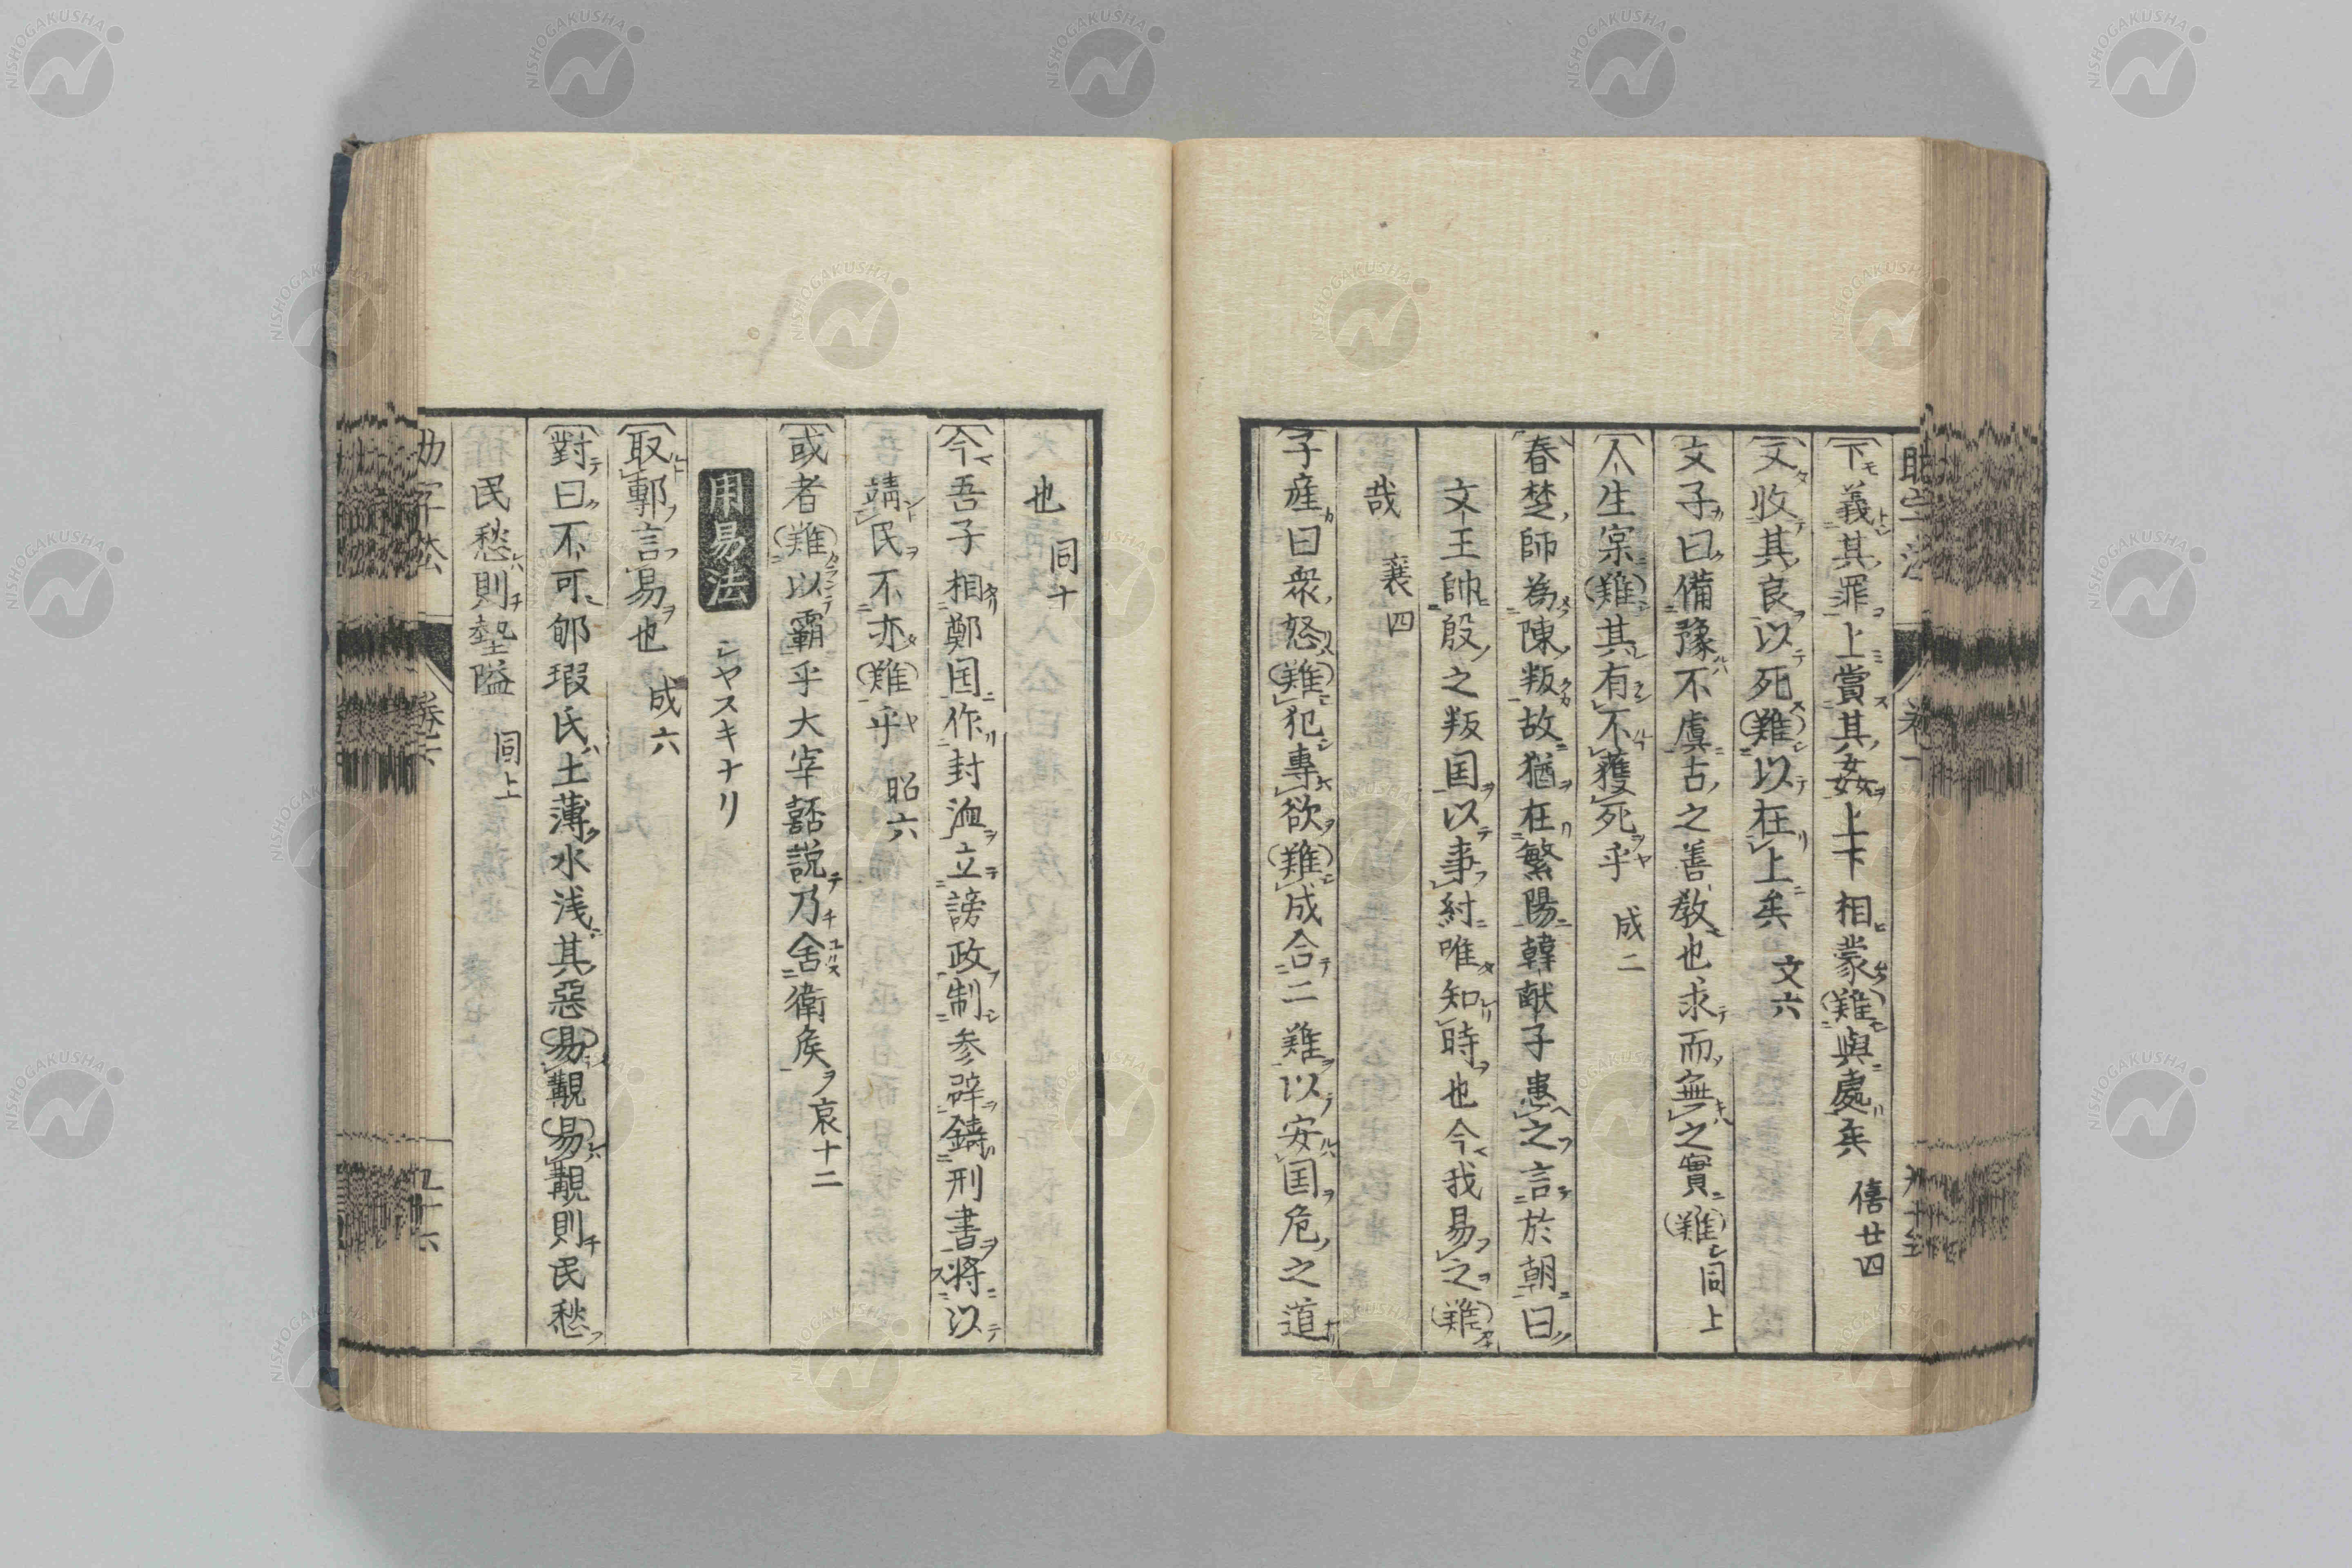 下義其罪上賞其姦上下相蒙難與處矣 僖廿四
文收其良以死難以在上矣 文六
文子曰備豫不虞古之善教也求而無之實難 同上
人生実難其有不獲死乎 成二
春楚師為陳叛故猶在繁陽韓献子患之言於朝曰
文王帥殷之叛国以事紂唯知時也今我易之難
哉 襄四
子産曰衆怒難犯專欲難成合二難以安国危之道
也 同十
今吾子相鄭国作封洫立謗政制参辟鑄刑書将以
靖民不亦難乎 昭六
或者難以霸乎大宰嚭説乃舍衛侯 哀十二
用易法 シヤスキナリ
取郭言易也 成六
對曰不可郇瑕氏土薄水浅其惡易覯易覯則民愁
民愁則墊隘 同上
卷六
九十六
NISHOGAKUSHA